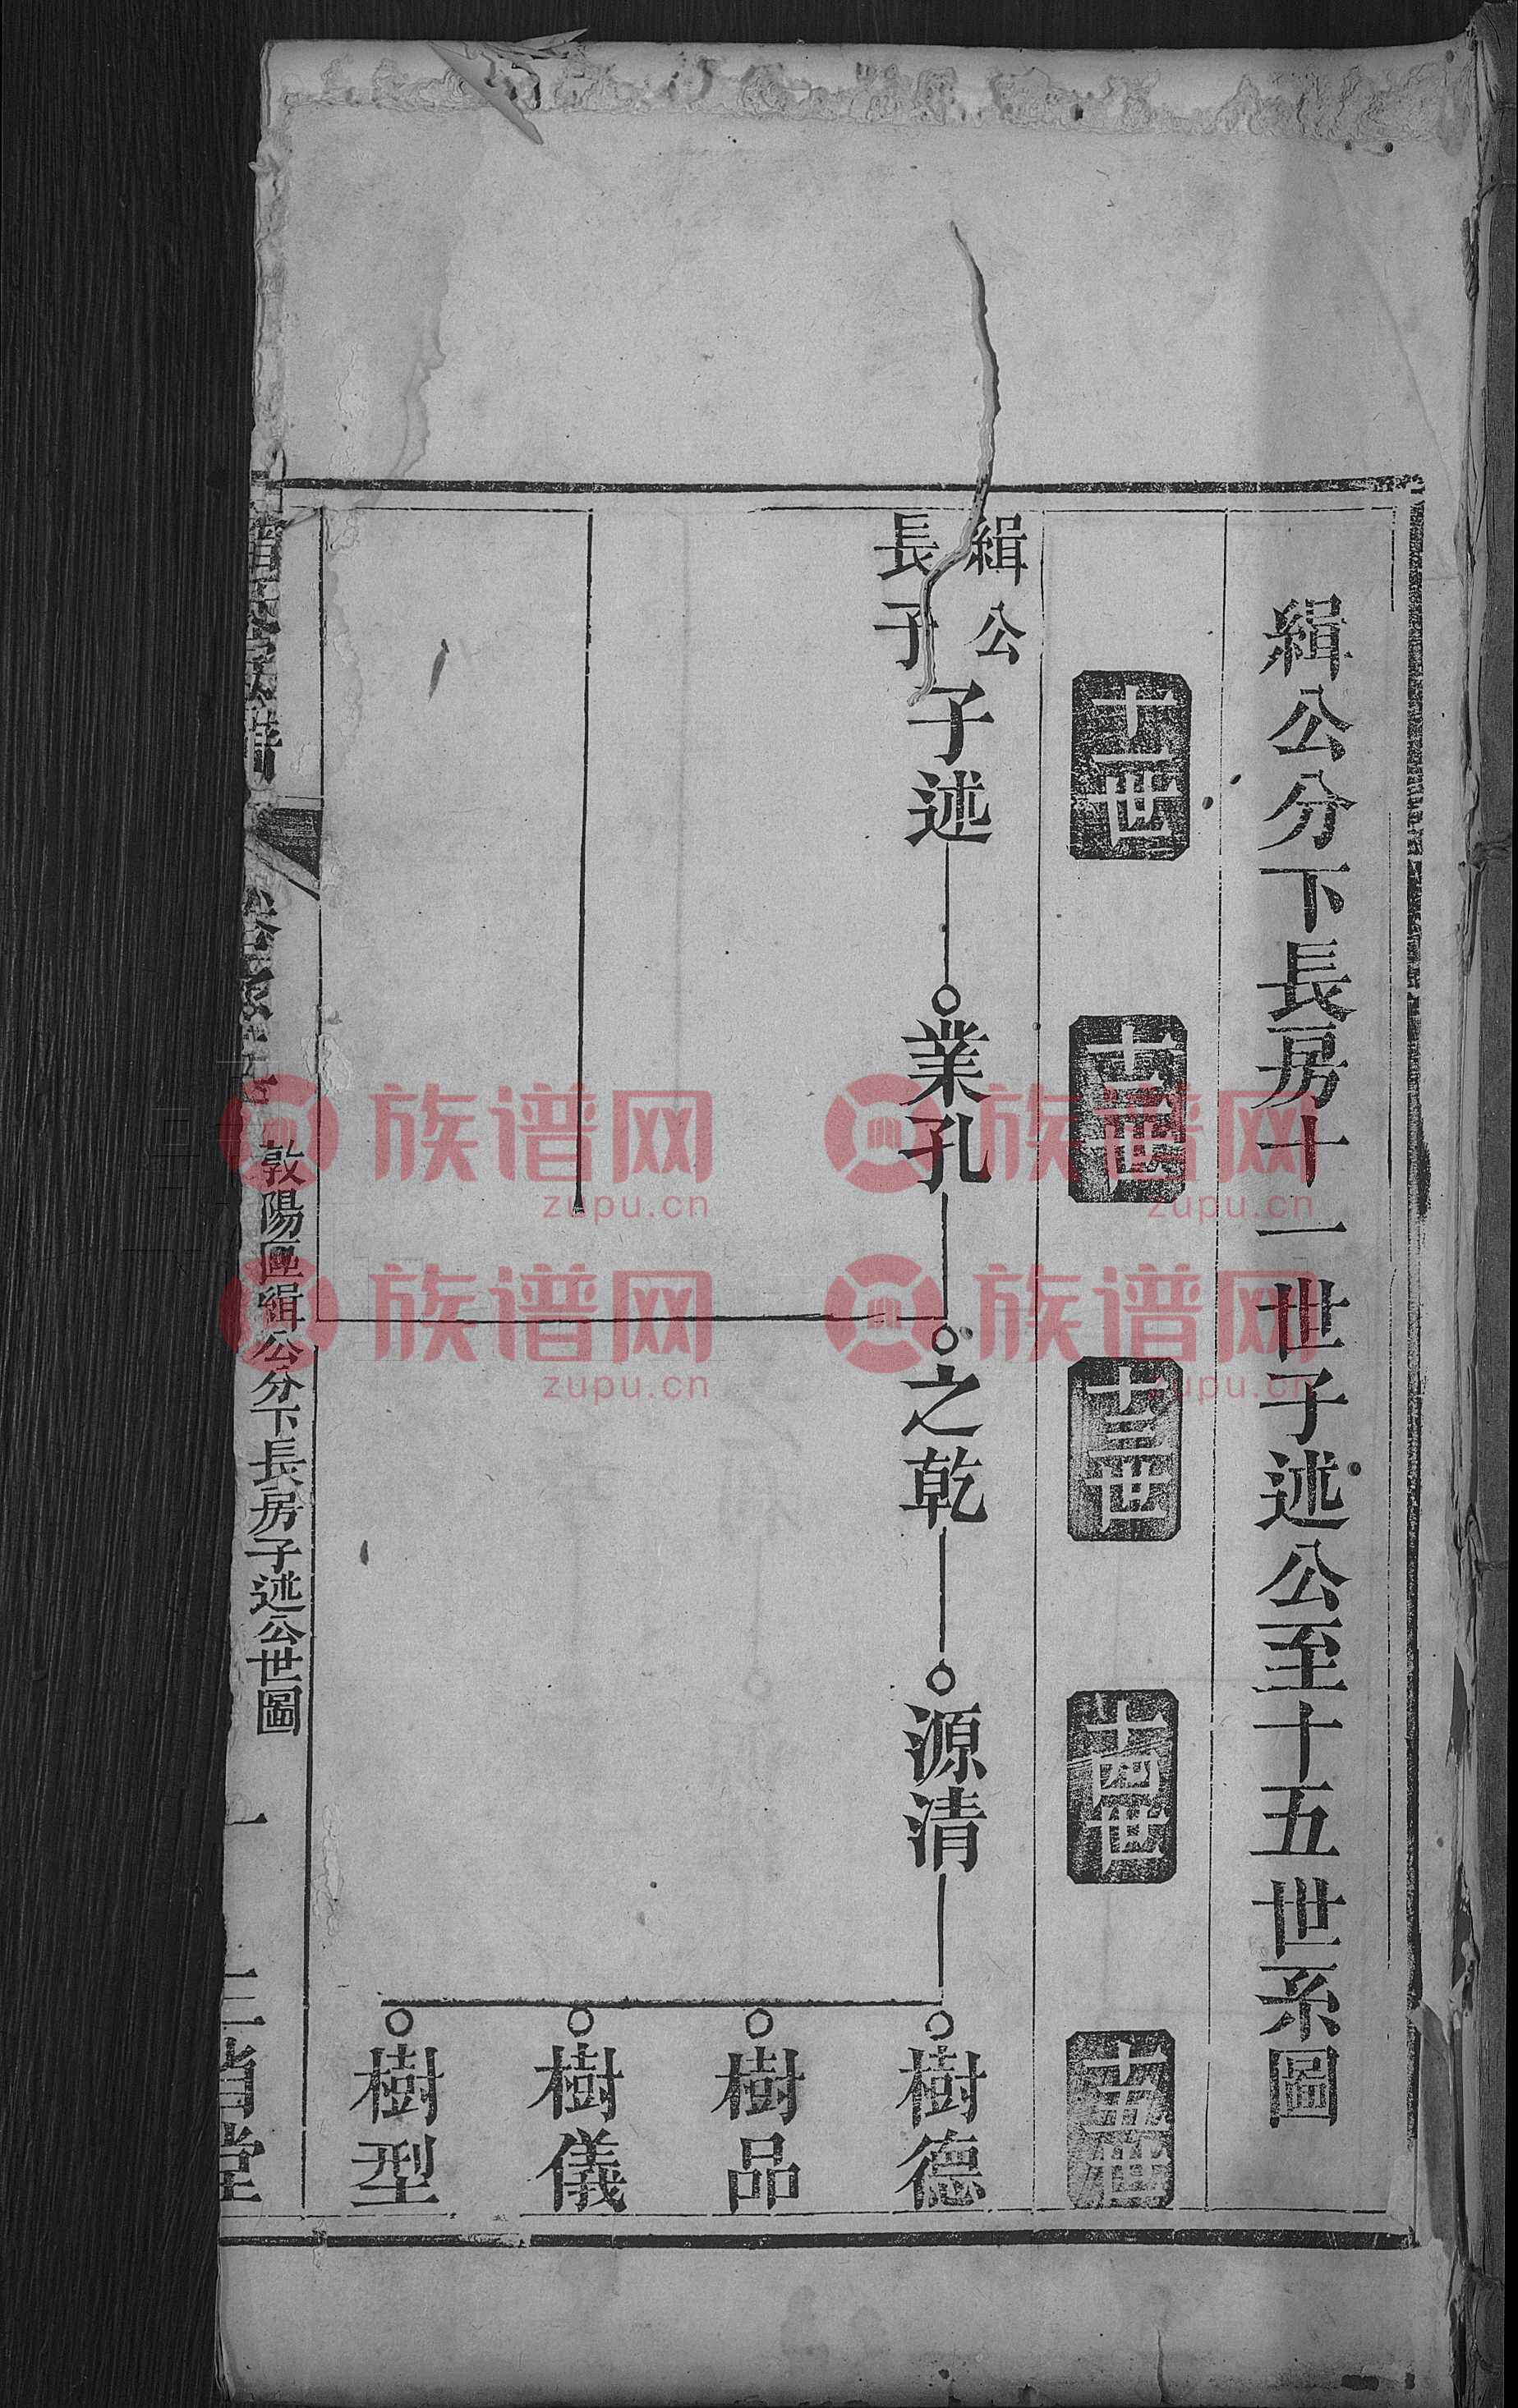 緝公分下長房十一世子述公至十五世系圖
十一世
十二世
十三世
十四世
十五世
緝公
長子
子述
業孔
之乾
源清
樹德
樹品
樹儀
樹型
敦陽區緝公分下長房子述公世圖
一
三省堂
族谱网
zupu.cn
族谱网
zupu.cn
族谱网
zupu.cn
族谱网
zupu.cn